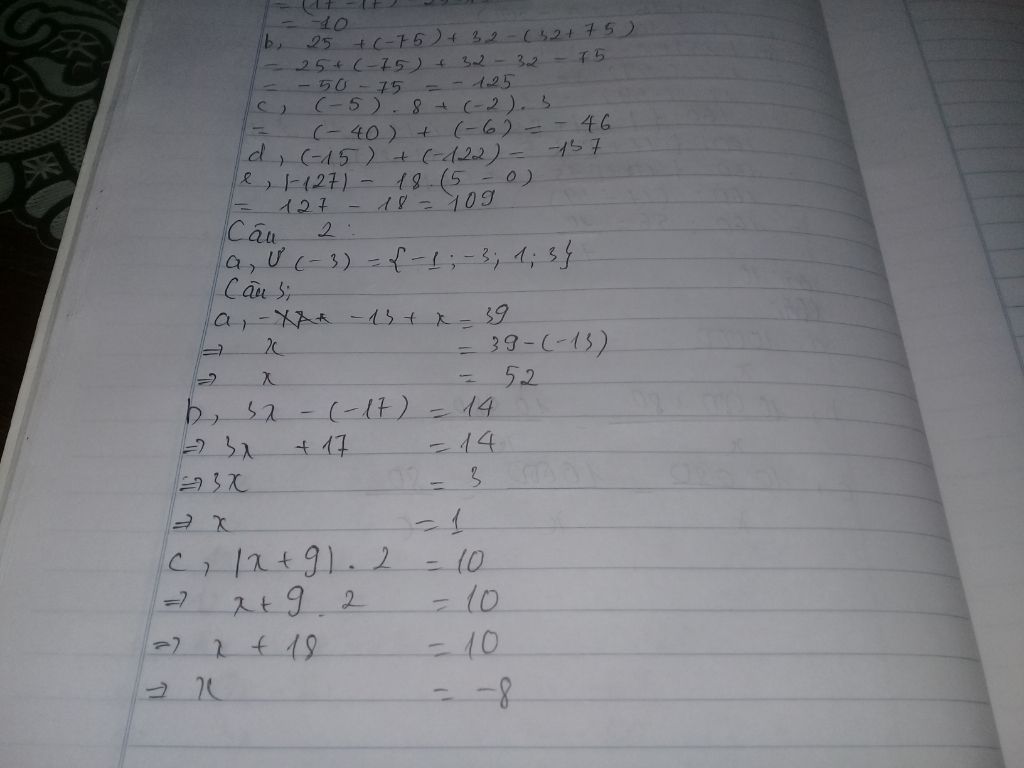 = (17-17) -
= -10
b, 25 + (-75) + 32 - (32 + 75)
= 25 + (-75) + 32 - 32 - 75
= -50 - 75 = -125
c, (-5) . 8 + (-2) . 3
= (-40) + (-6) = -46
d, (-15) + (-122) = -137
e, |-127| - 18 . (5 - 0)
= 127 - 18 = 109
Câu 2:
a, Ư (-3) = {-1; -3; 1; 3}
Câu 3;
a, -13 + x = 39
=> x = 39 - (-13)
=> x = 52
b, 3x - (-17) = 14
=> 3x + 17 = 14
=> 3x = 3
=> x = 1
c, |x + 9| . 2 = 10
=> x + 9 . 2 = 10
=> x + 18 = 10
=> x = -8